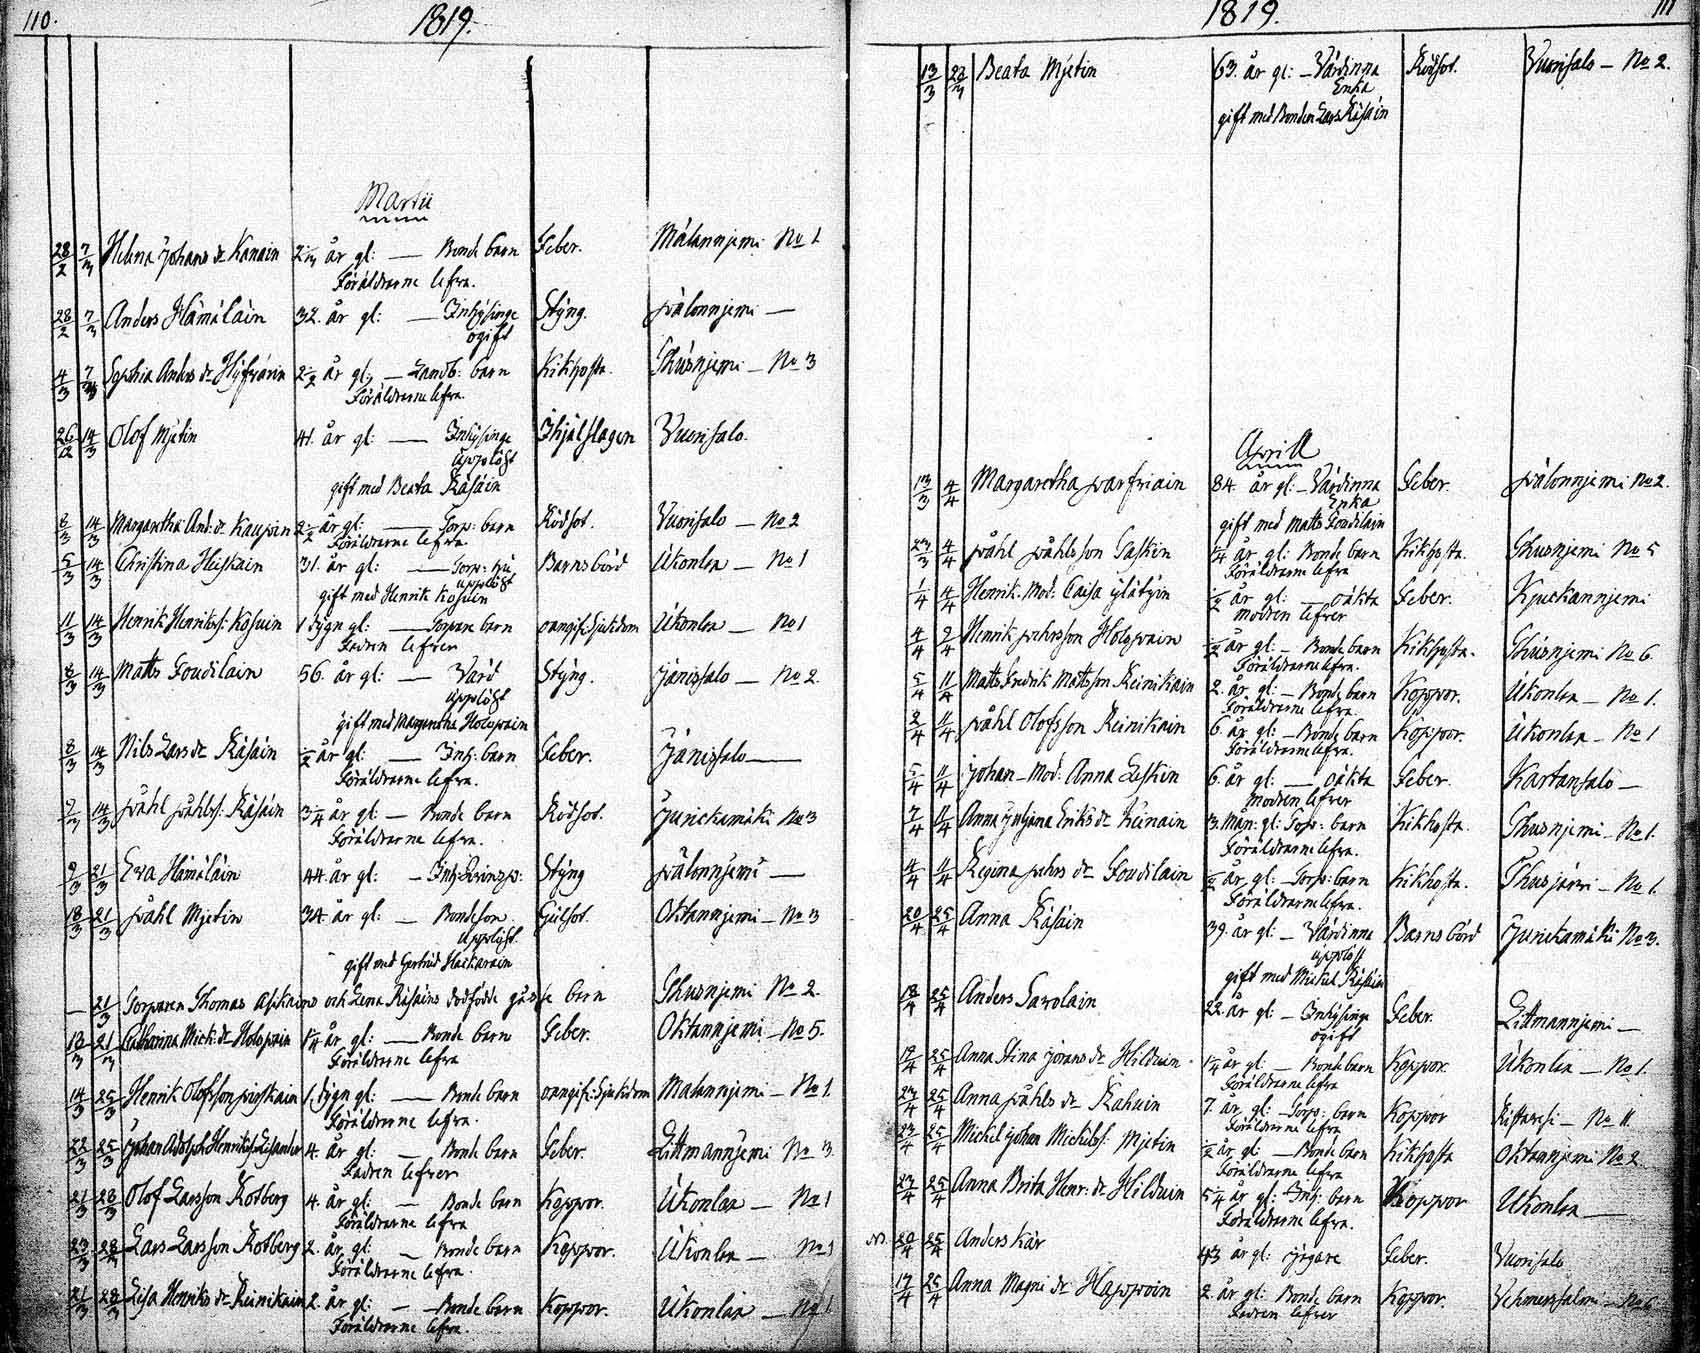 110.
1819.
Martii
28/2 7/3 Helena Johans dr Kanain 2 1/3 år gl: — Bonde barn Feber. Malannjemi No 1
Föräldrarne lefva.
28/2 7/3 Anders Hämäläin 32. år gl: — Inhysinge Styng. pälonnjemi —
ogift
4/3 7/3 Sophia Anders dr 2 1/2 år gl: — Landb: barn Kikhosta. Thusnjemi — No 3
Föräldrarne lefva.
26/12 14/3 Olof Mjetin 41. år gl: — Inhysinge Ihjälslagen Vuorisalo.
upplöst
gift med Beata Räsäin
8/3 14/3 Margaretha And: dr Kaupin 2 1/2 år gl: — Torp: barn Rödsot. Vuorisalo — No 2
Föräldrarne lefva.
5/3 14/3 Christina Heiskain 31. år gl: — Torp: hu Barnsbörd Ukonlax — No 1
upplöst
gift med Henrik Kosuin
11/3 14/3 Henrik Henrikss: Kosuin 1 dygn gl: — Torpare barn oangif: Sjukdom Ukonlax — No 1
Fadren lefver
8/3 14/3 Matts Toudilain 56. år gl: — Värd Styng. Jänissalo — No 2.
upplöst
gift med Margaretha Holopain
8/3 14/3 Nils Lars dr Räsäin 1/2 år gl: — Inh: barn Feber. Jänissalo —
Föräldrarne lefva.
9/3 14/3 påhl påhlss: Räsäin 3/4 år gl: — Bonde barn Rödsot. Jurickamäki No 3
Föräldrarne lefva.
9/3 21/3 Eva Hämäläin 44. år gl: — Inh: Styng pälonnjemi —
18/3 21/3 påhl Mjetin 34. år gl: — Bondeson. Gulsot. Oktannjemi — No 3
upplöst.
gift med Gertrud Hackarain
— 21/3 Torparen Thomas Asikains och Lena Räsäins dödfödde gosse barn Thusnjemi No 2.
18/3 21/3 Catharina Mick: dr Holopain 1/4 år gl: — Bonde barn Feber. Oktannjemi — No 5.
Föräldrarne lefva
14/3 25/3 Henrik Olofsson 1. dygn gl: — Bonde barn oangif: Sjukdom Malannjemi — No 1.
Föräldrarne lefva.
22/3 25/3 Johan Adolph Henrikss: Lisander 4. år gl: — Bonde barn Feber. Littmannjemi No 3
Fadren lefver
21/3 28/3 Olof Larsson Rotberg 4. år gl: — Bonde barn Koppor. Ukonlax — No 1
Föräldrarne lefva
23/3 28/3 Lars Larsson Rotberg 2. år gl: — Bonde barn Koppor. Ukonlax — No 1
Föräldrarne lefva.
21/3 28/3 Lisa Henriks dr Reinikain 2. år gl: — Bonde barn Koppor. Ukonlax — No 1
Föräldrarne lefva.
1819.
111
13/3 23/3 Beata Mjetin 63. år gl: — Värdinna Rödsot. Vuorisalo — No 2.
Enka
gift med Bonden Lars Räsäin
Aprill
13/3 4/4 Margaretha parfviain 84. år gl: — Värdinna Feber. pälonnjemi No 2.
Enka
gift med Matts Toudilain
23/3 4/4 påhl påhlsson Taskin 1/4 år gl: Bonde barn Kikhosta. Thusnjemi No 5
Föräldrarne lefva
1/4 4/4 Henrik. Mod: Caisa 1/2 år gl: — oäkta Feber. Kjuckannjemi
modren lefver
4/4 9/4 Henrik pehrsson Holopain 1/2 år gl: — Bonde barn Kikhosta. Thusnjemi No 6.
Föräldrarne lefva.
5/4 11/4 Matts Fredrik Mattsson Reinikain 2. år gl: — Bonde barn Koppor. Ukonlax — No 1.
Föräldrarne lefva.
2/4 11/4 påhl Olofsson Reinikain 6. år gl: — Bonde barn Koppor. Ukonlax — No 1
Föräldrarne lefva.
5/4 11/4 Johan — Mod: Anna Leskin 6. år gl: — oäkta Feber. Kartansalo —
modren lefver
7/4 11/4 Anna Juliana Eriks dr 3. Mån: gl: Torp: barn Kikhosta. Thusnjemi — No 1.
Föräldrarne lefva.
4/4 11/4 Regina pehrs dr Toudilain 1/2 år gl: — Torp: barn Kikhosta. Thusjärvi — No 1.
Föräldrarne lefva.
20/4 25/4 Anna Räsäin 39. år gl: — Värdinna Barnsbörd Jurickamäki No 3.
upplöst
gift med Mickel Räsäin
18/4 25/4 Anders Savolain 22. år gl: — Inhysinge Feber. Littmannjemi —
ogift
19/4 25/4 Anna Stina Johans dr Hilduin. 1/4 år gl: — Bonde barn Koppor. Ukonlax — No 1.
Föräldrarne lefva
24/4 25/4 Anna påhls dr Kahuin 7. år gl: — Torp: barn Koppor — No 11.
Föräldrarne lefva
23/4 25/4 Mickel Johan Mickelss: Mjetin 1/2 år gl: — Bonde barn Kikhosta Oktannjemi No 2
Föräldrarne lefva
24/4 25/4 Anna Brita Henr: dr Hilduin 5 1/4 år gl: Inh: barn Koppor Ukonlax —
Föräldrarne lefva.
20/4 25/4 Anders Kär 43 år gl: Feber. Vuorisalo
17/4 25/4 Anna Magni dr Happoin 2. år gl: Bonde barn Koppor. Vehmersalmi — No 6
Fadren lefver